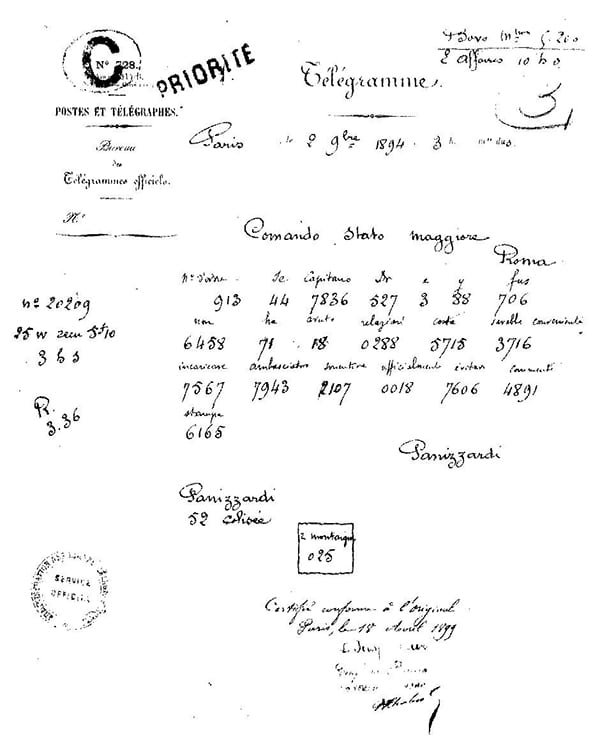 C
Nº 728.
PRIORITÉ
2 affaires 10 h 0
Télégramme.
3
POSTES ET TÉLÉGRAPHES.
Paris le 2 9bre 1894 3 h.
Bureau
des
Télégrammes officiels.
N.º
Comando Stato maggiore
Roma
Nº d'ordre Se Capitano Dr e y fus
913 44 7836 527 3 88 706
nº 20209
non ha avuto relazioni costà sarebbe conveniente
25 w
6458 71 18 0288 5715 3716
3 h 3
incaricare ambasciatore smentire officialmente evitare commenti
7567 7943 2107 0018 7606 4891
R.
3.36
stampa
6165
Panizzardi
Panizzardi
52 colisée
2 montaigne
025
SERVICE
OFFICIEL
Certifié conforme à l'original
Paris, le 18 Avril 1899